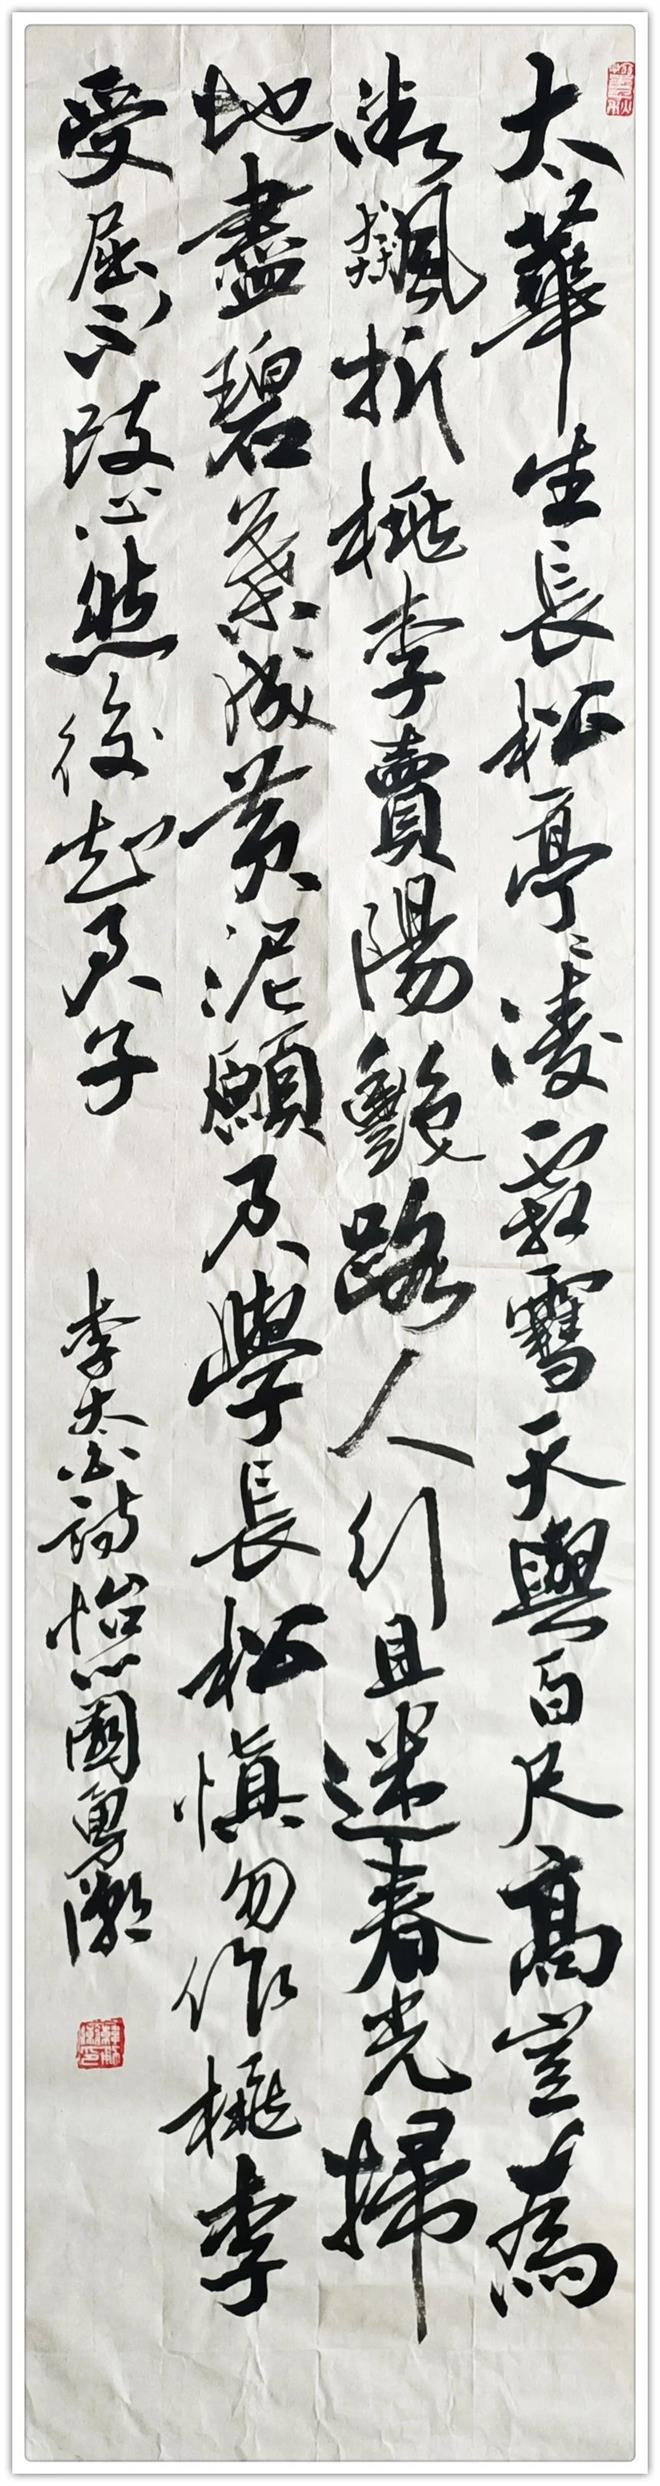 太華生長松亭〻凌霜雪天與百尺高豈為
微飆折桃李賣陽艷路人行且迷春光掃
地盡碧葉成黃泥願君學長松慎勿作桃李
受屈不改心然後知君子
李太白詩怡心園勇